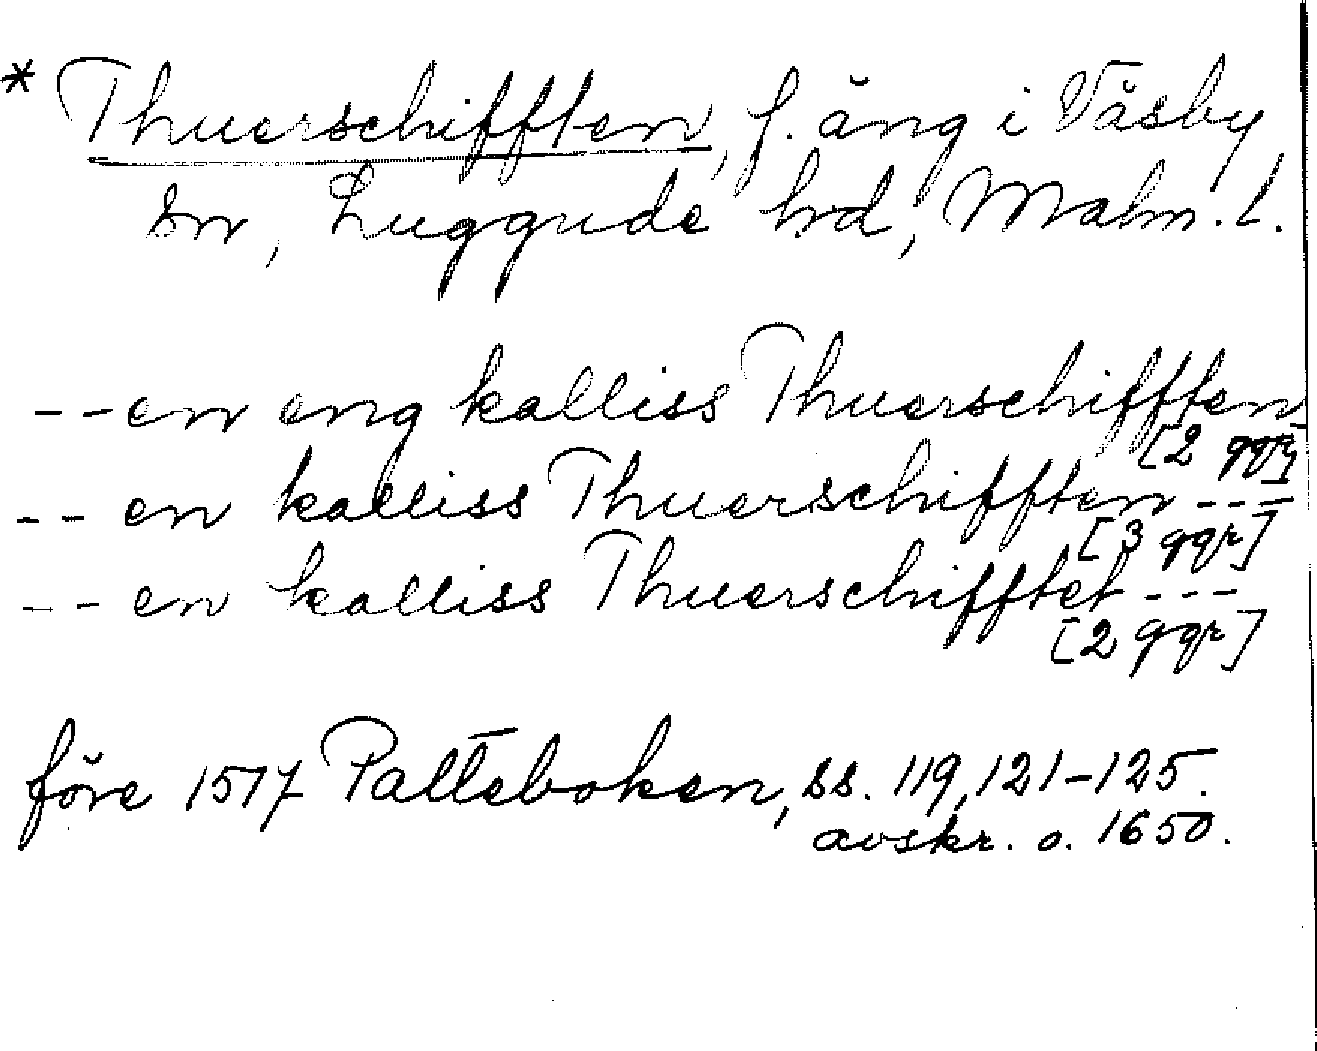 * Thuerschifften, f. äng i Väsby
sn, Luggude hd, Malm. l.
-- en eng kalliss Thuerschifften
[2 ggr]
-- en kalliss Thuerschifften ---
[3 ggr]
-- en kalliss Thuerschifftet ---
[2 ggr]
före 1517 Palteboken, ss. 119, 121-125.
avskr. o. 1650.